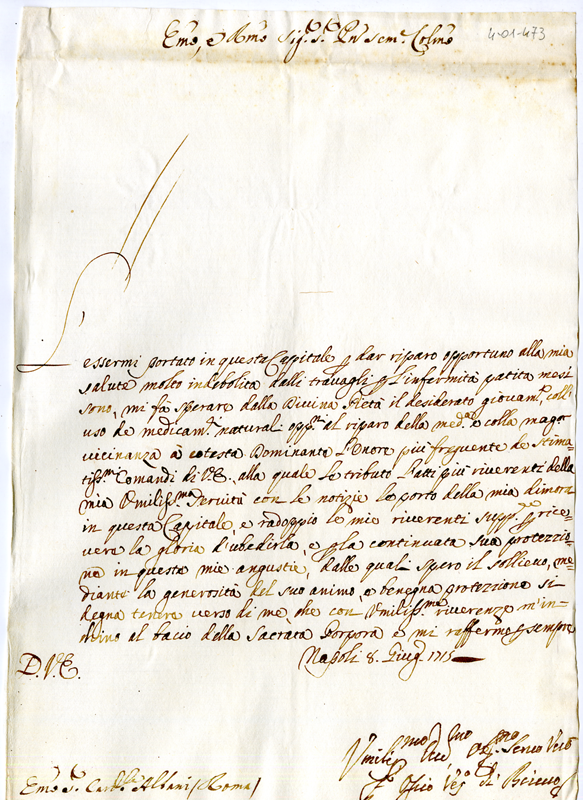 Emo, e Rmo Sig.r S.r Prn semp. Colmo
4-01-473
L'
essermi portato in questa Capitale p dar riparo opportuno alla mia
salute molto indebolita dalli travagli, p l'infermità patita mesi
sono, mi fà sperare dalla Divina Pietà il desiderato giovam.to coll'
uso de medicam.ti naturali opp.ni al riparo della med.a e colla magg.r
vicinanza à cotesta Dominante l'onore più frequente de stima=
tiss.mi Comandi di V.E. alla quale le tributo l'atti più riverenti della
mia Umiliss.ma Servitù con le notizie le porto della mia dimora
in questa Capitale, e radoppio le mie riverenti supp.e p rice=
vere la gloria d'ubedirla, e p la continuata sua protezzio=
ne in queste mie angustie, dalle quali spero il sollievo, me=
diante la generosità del suo animo, e benegna protezzione si
degna tenere verso di me, che con Umiliss.ma riverenza m'in=
chino al bacio della Sacrata Porpora e mi raffermo p sempre
Napoli 8. Giug.o 1715
D.V.E.
Umilis.mo Servo Vero
Vesc.o di
Emo S.r Card.le Albani / Roma /